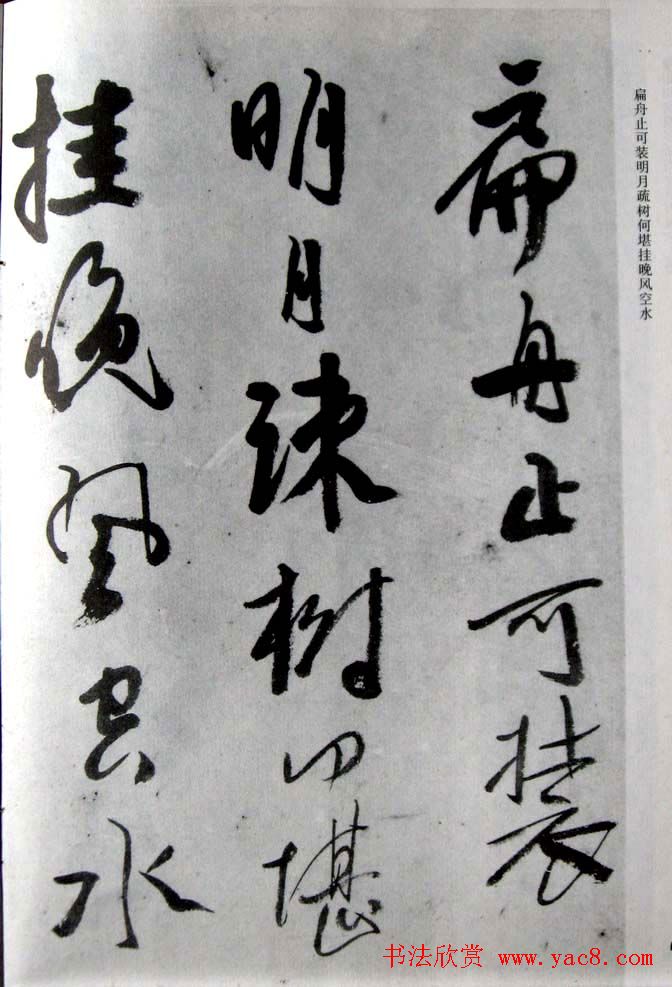 扁舟止可装
明月疎樹何堪
挂晚風空水
扁舟止可装明月疏树何堪挂晚风空水
书法欣赏 www.yac8.com